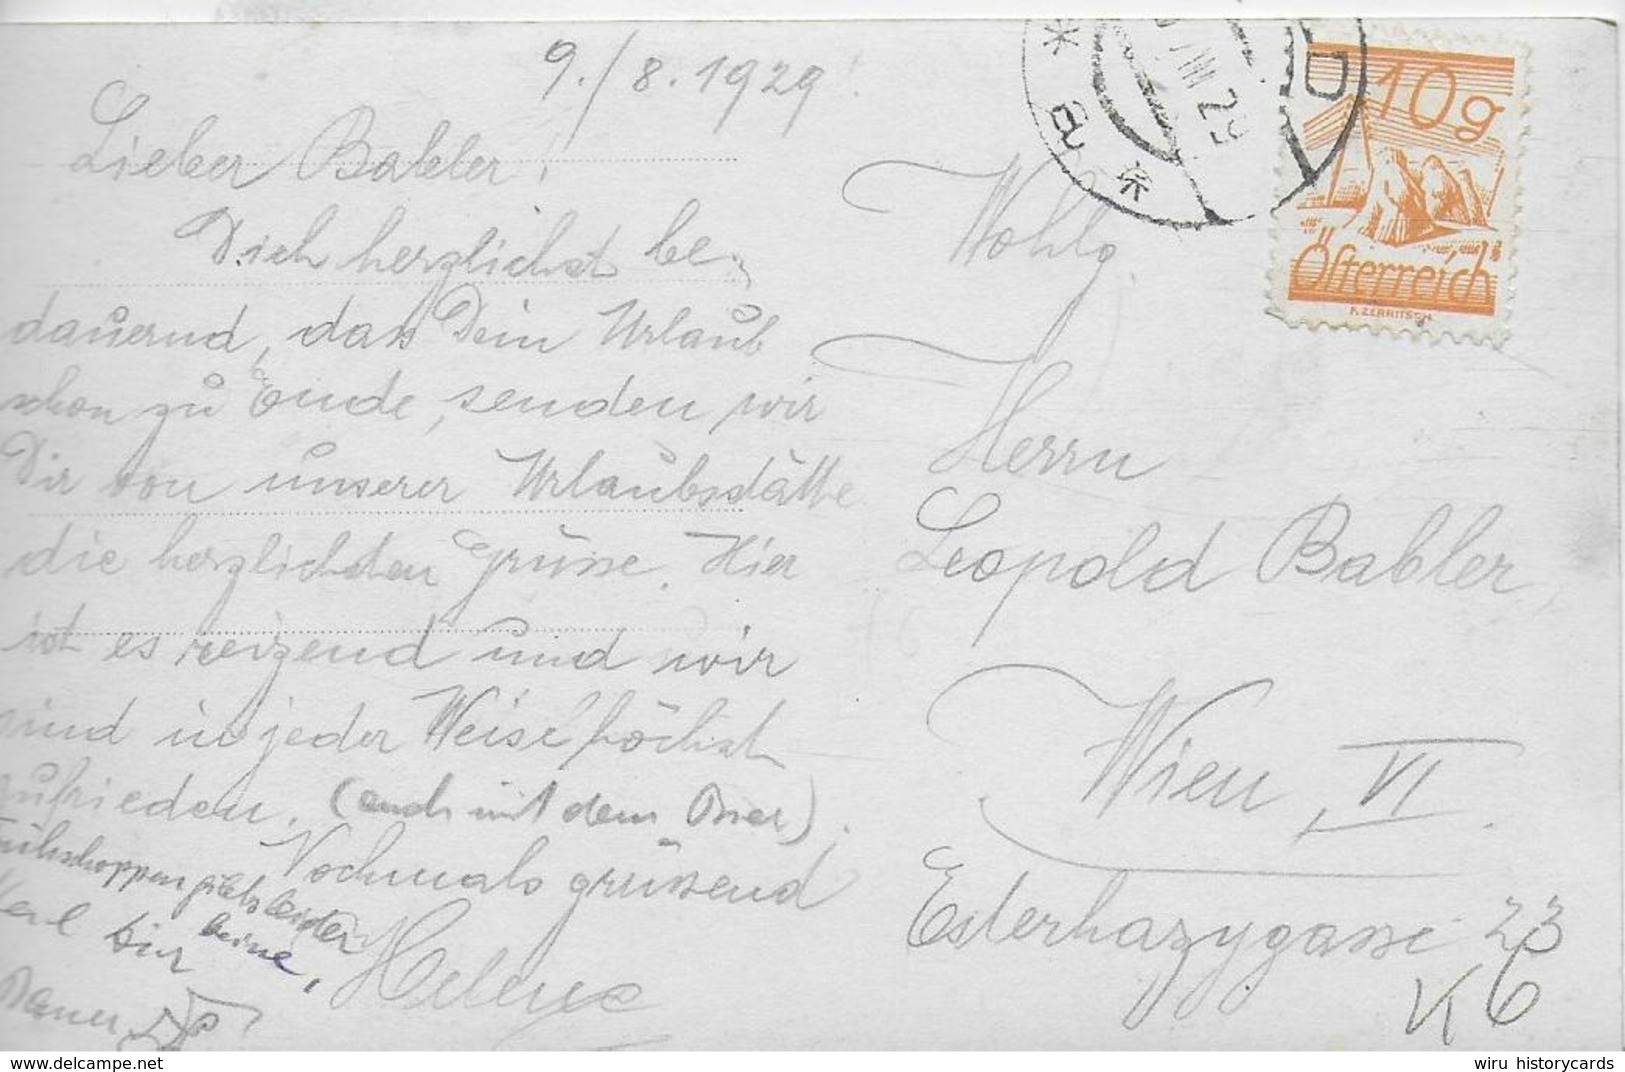 9./8.1929
Lieber Babler!
Dich herzlichst be-
dauernd, dass Dein Urlaub
schon zu Ende, senden wir
Dir von unserer Urlaubsstätte
die herzlichsten Grüsse. Hier
ist es reizend und wir
sind in jeder Weise höchst
zufrieden. (auch mit dem Bier).
Frühschoppen gibts leider keine,
Nochmals grüssend
Helene
Karl
Wohlg.
Herrn
Leopold Babler,
Wien, VI.
Esterhazygasse 23
K6
VIII 29
* a *
10g
Österreich
F. ZERRITSCH
wiru historycards